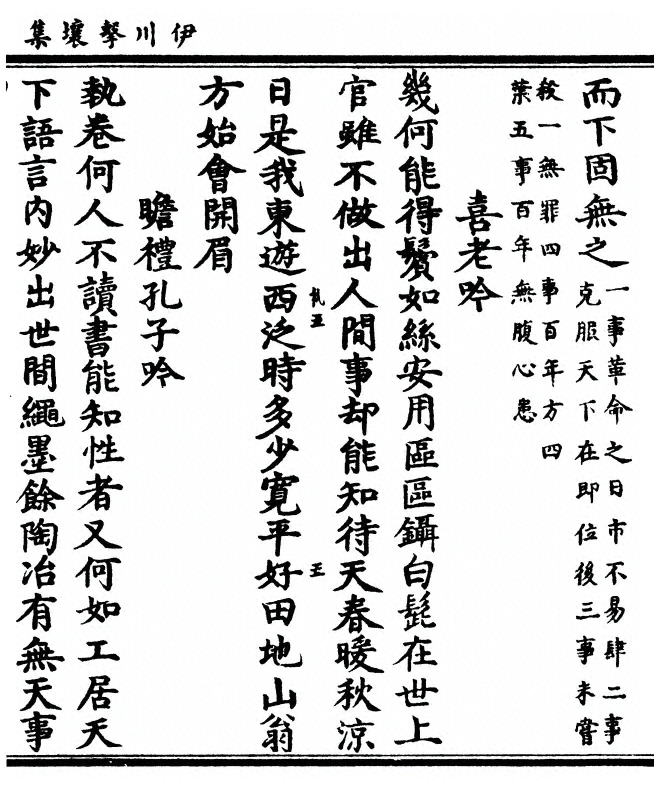 伊川擊壤集
而下固無之
一事革命之日市不易肆二事
克服天下在即位後三事未嘗
殺一無罪四事百年方四
葉五事百年無腹心患
喜老吟
幾何能得鬢如絲安用區區鑷白髭在世上
官雖不做出人間事却能知待天春暖秋涼
日是我東遊西泛時多少寬平好田地山翁
方始會開眉
瞻禮孔子吟
執卷何人不讀書能知性者又何如工居天
下語言内妙出世間繩墨餘陶冶有無天事